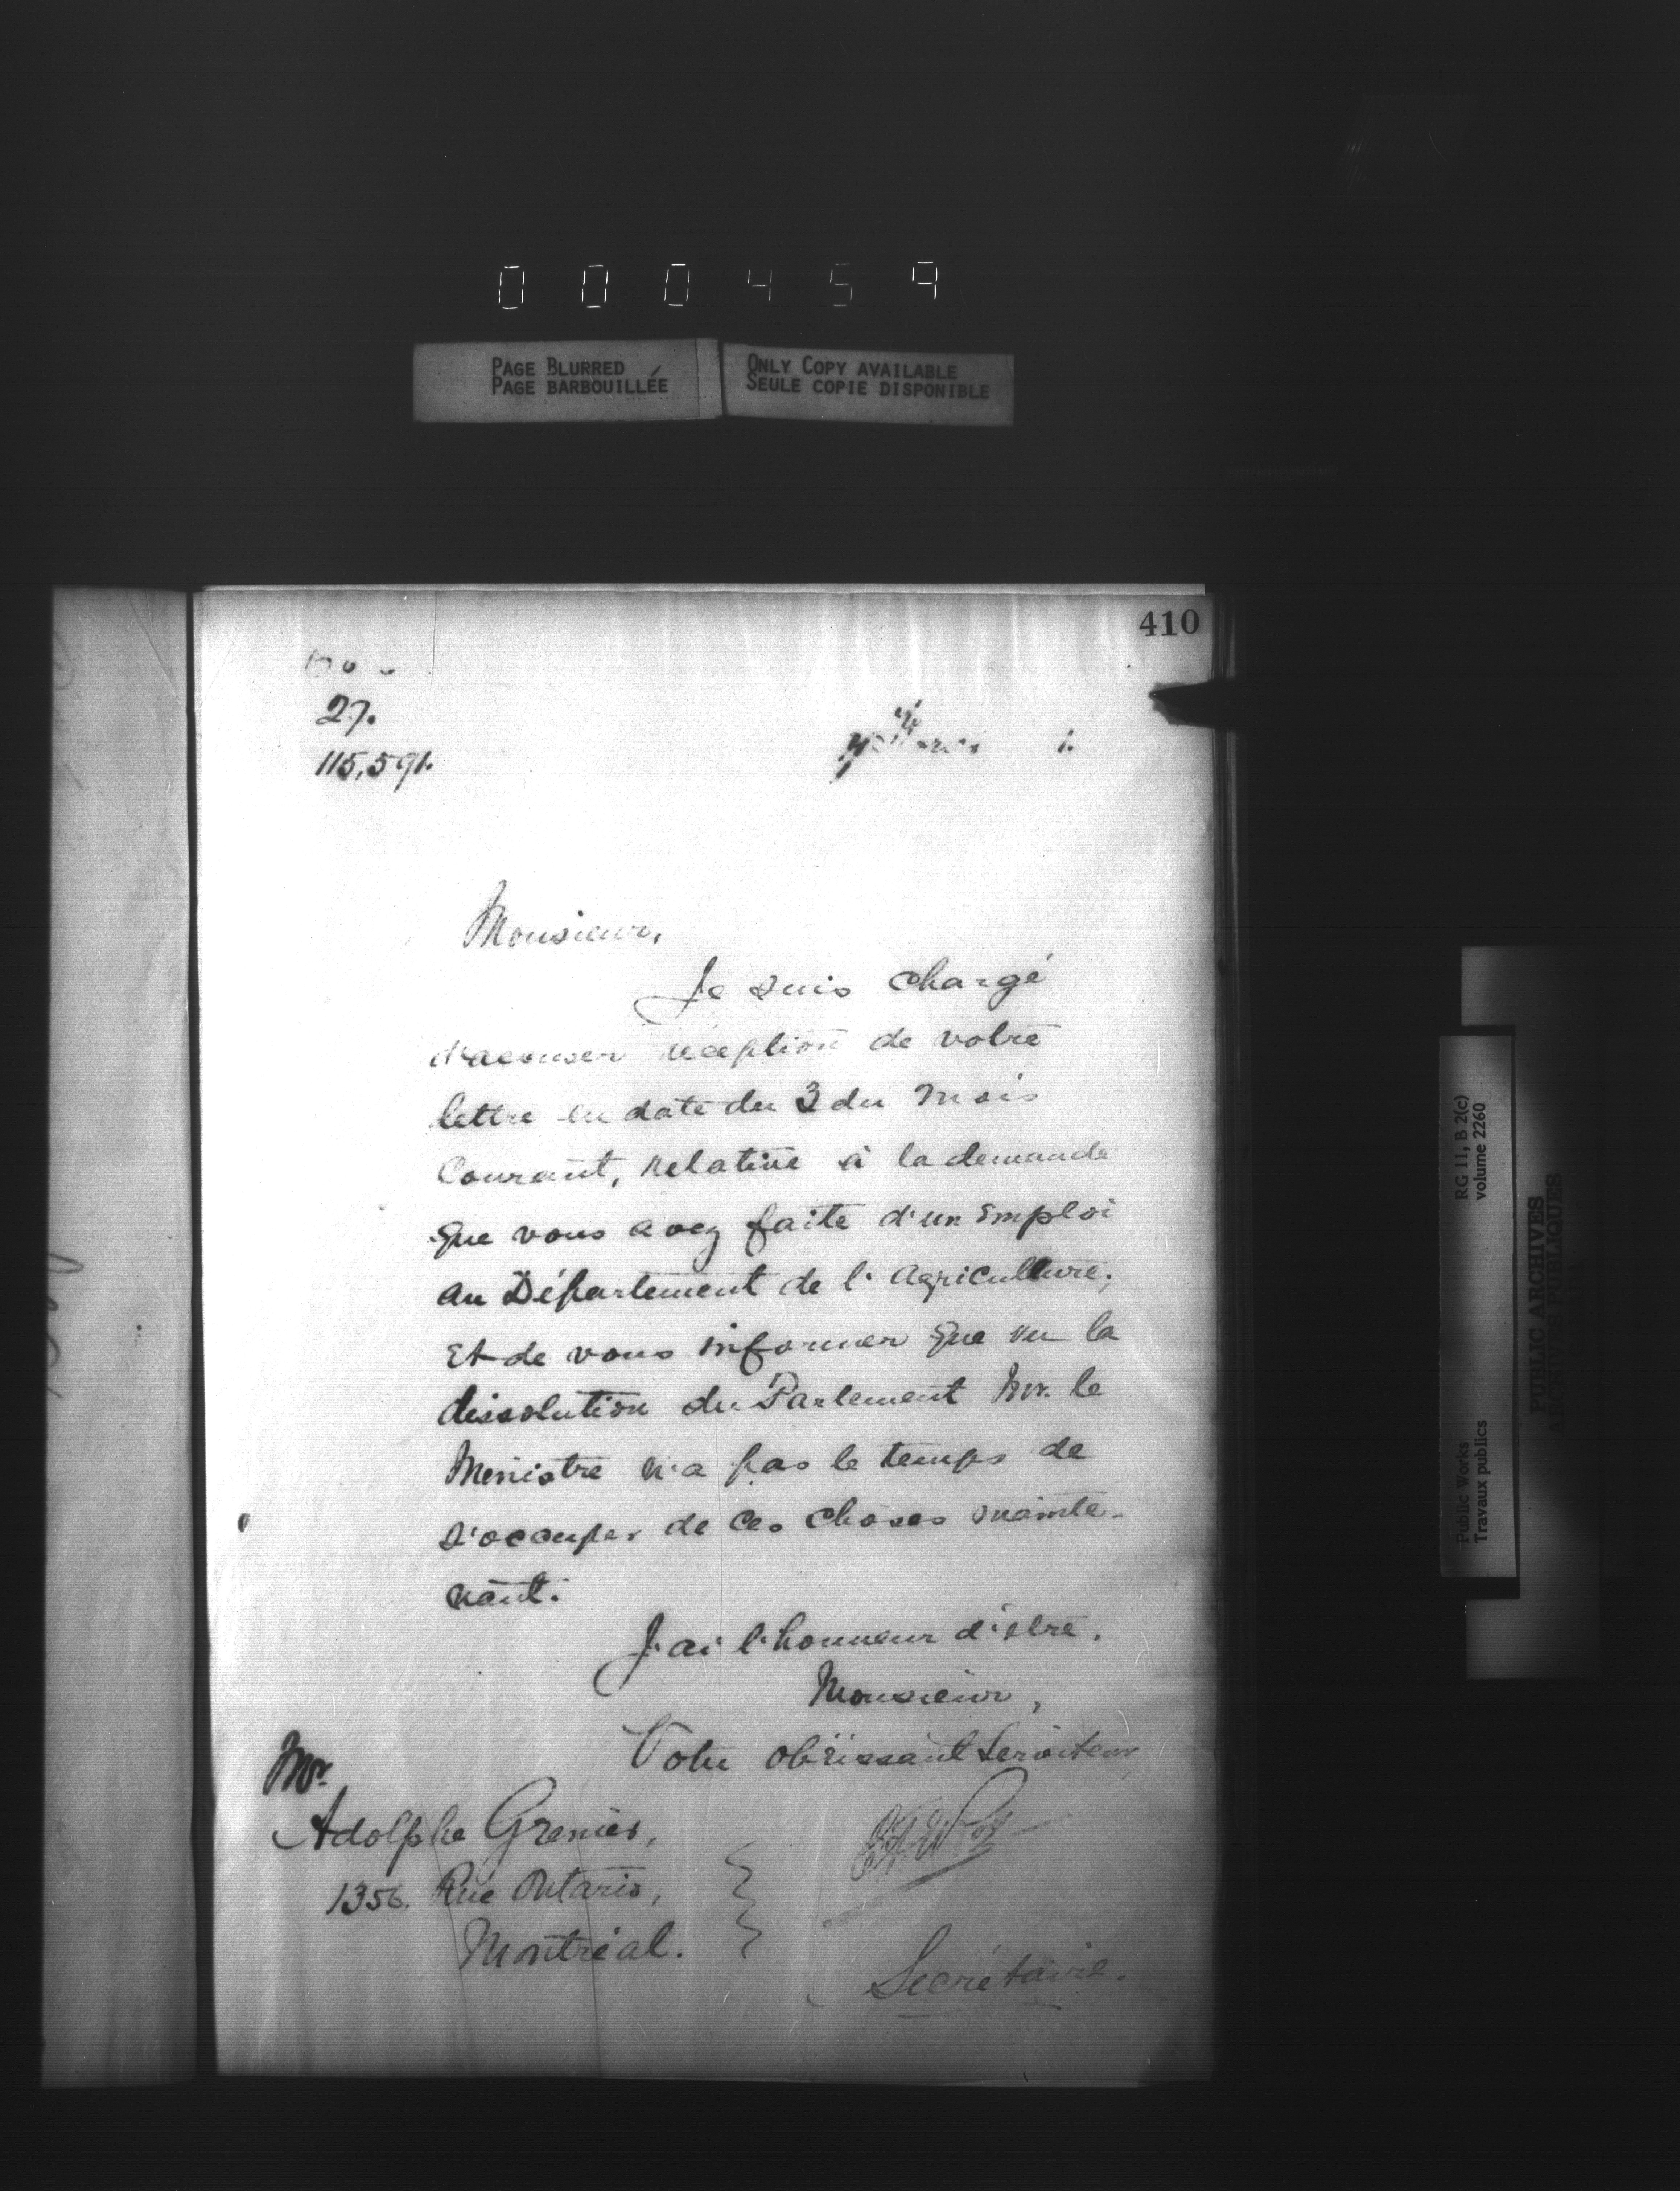 000459
PAGE BLURRED
PAGE BARBOUILLÉE
ONLY COPY AVAILABLE
SEULE COPIE DISPONIBLE
410
27.
115,591.
Mars 1.
Monsieur,
Je suis chargé
d'accuser réception de votre
lettre en date du 3 du mois
Courant, relative à la demande
que vous avez faite d'un Emploi
au Département de l'Agriculture;
Et de vous informer que vu la
dissolution du Parlement Mr. le
Ministre n'a pas le temps de
s'occuper de ces choses mainte-
nant.
J'ai l'honneur d'être,
Monsieur,
Votre obéissant Serviteur
Mr.
Adolphe Grenier,
1356. Rue Ontario,
Montréal.
Secrétaire.
RG 11, B 2(c)
volume 2260
Public Works
Travaux publics
PUBLIC ARCHIVES
ARCHIVES PUBLIQUES